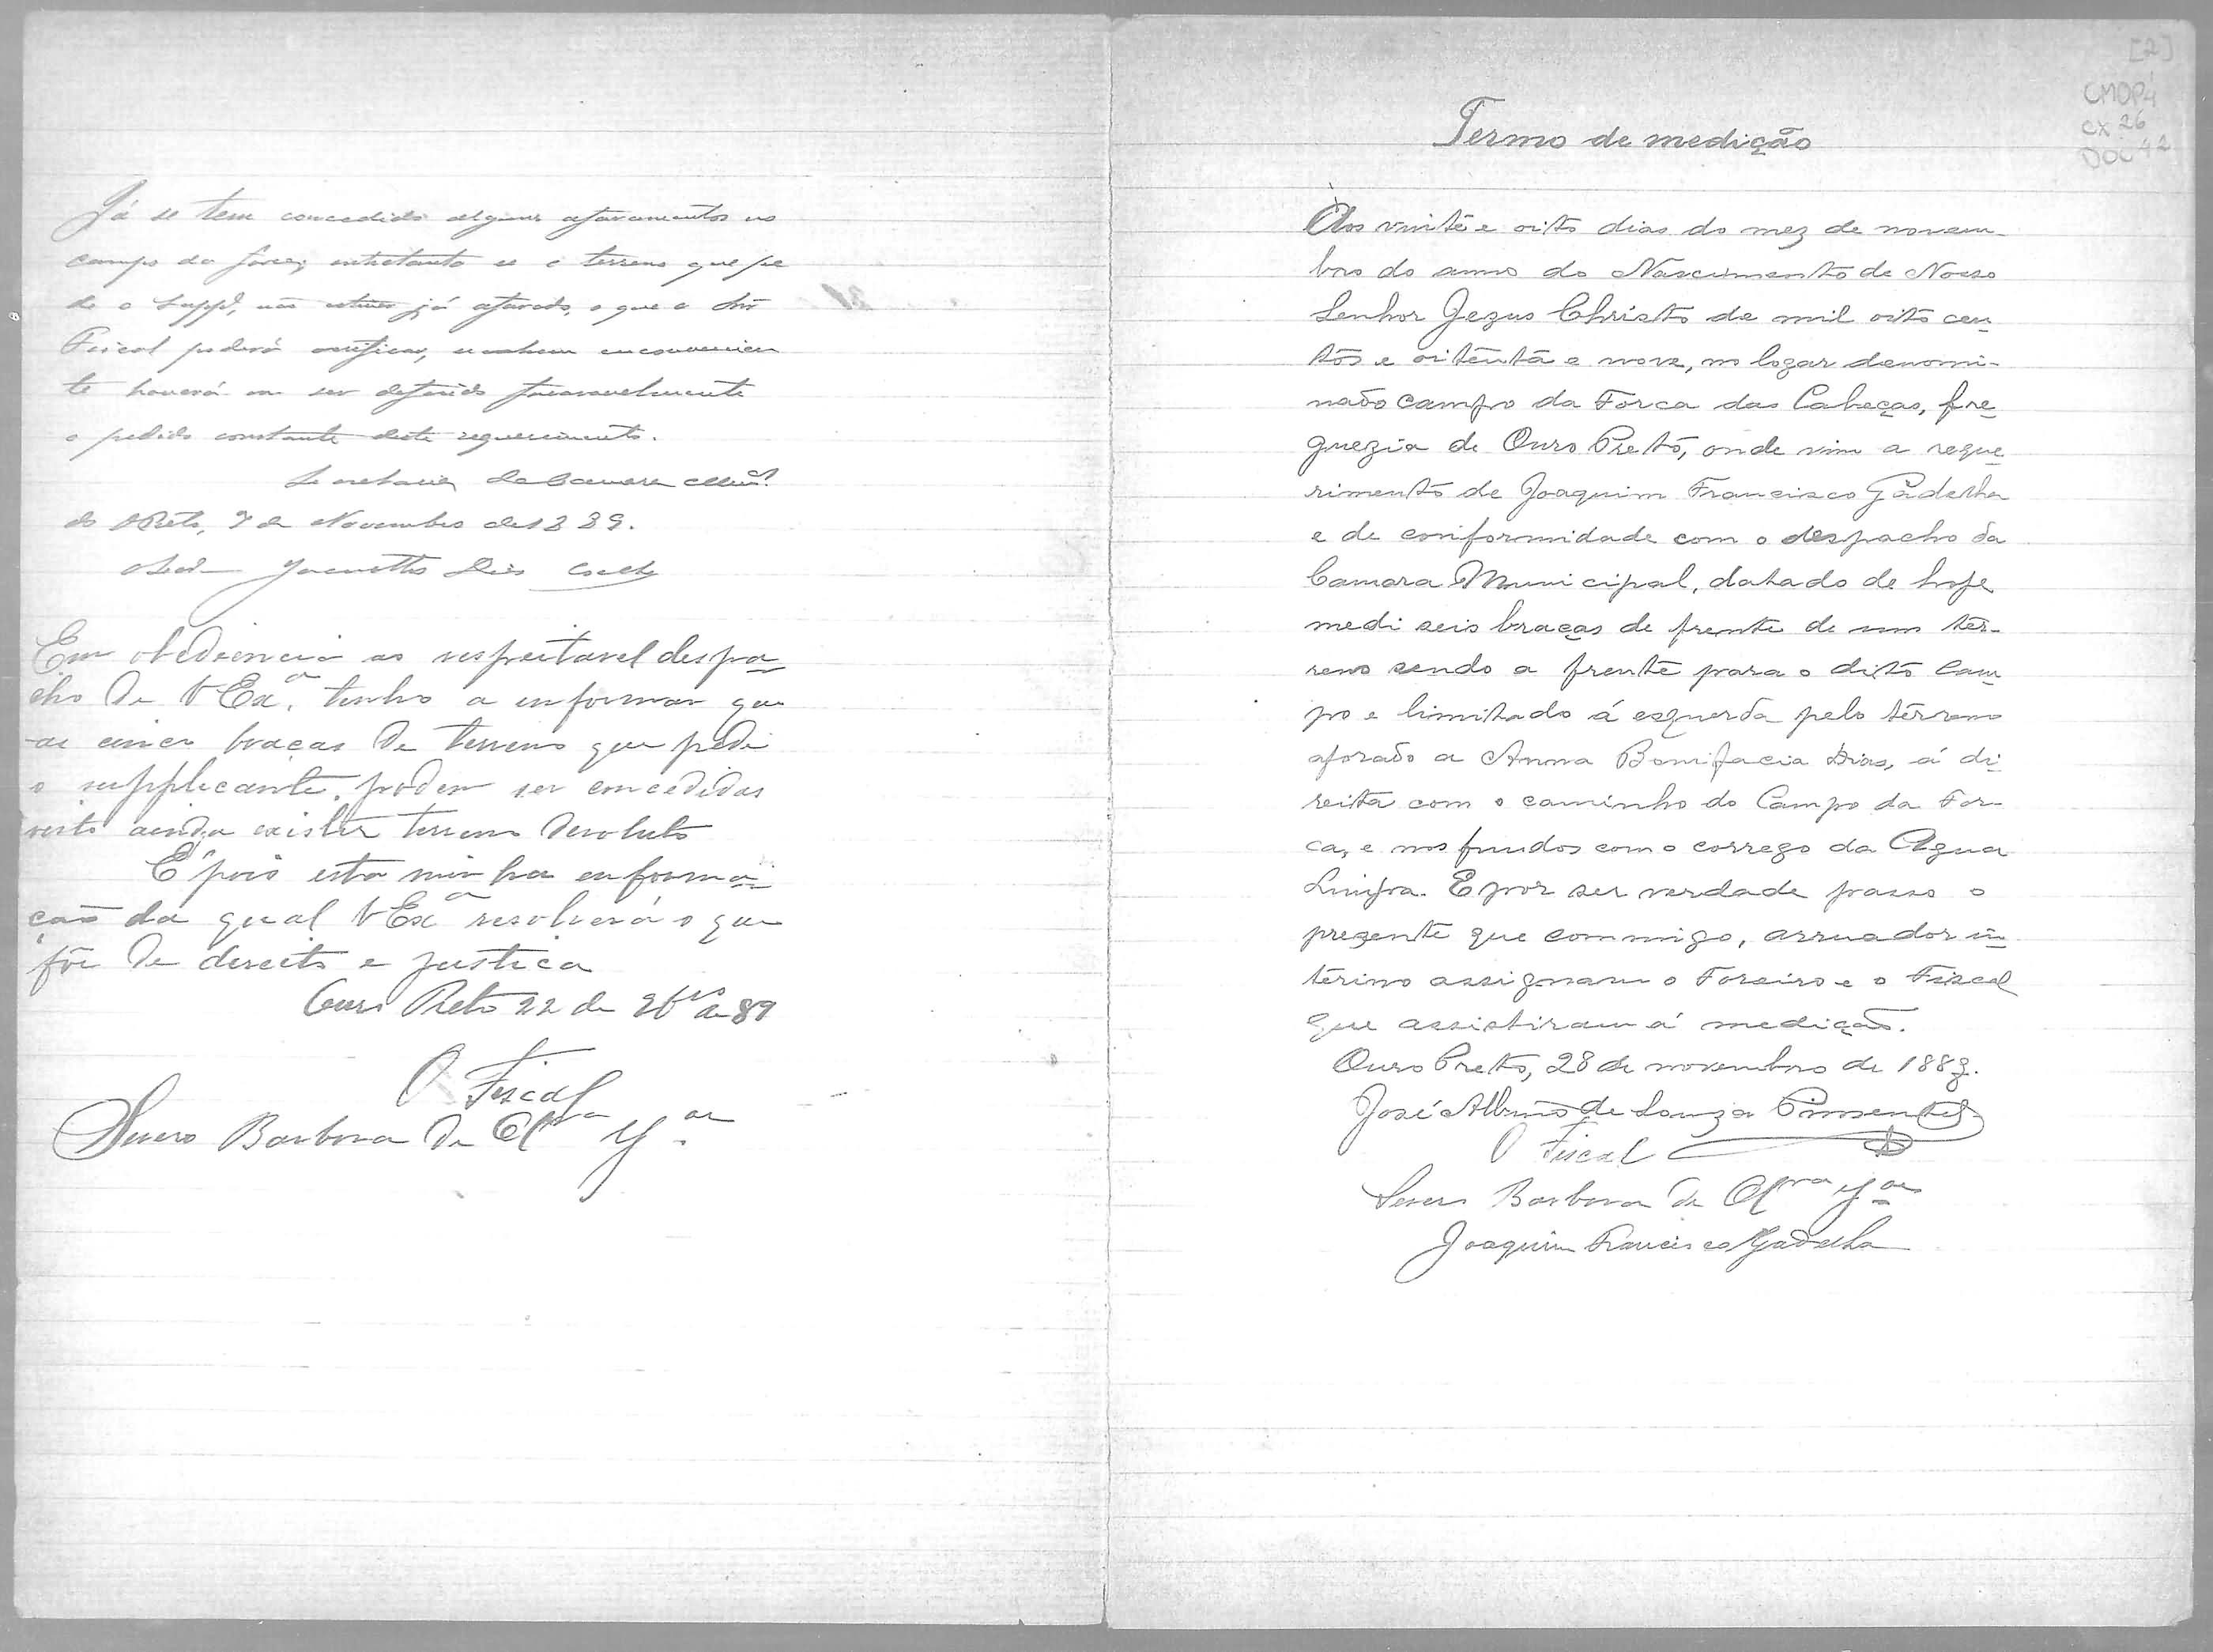 Já se tem concedido alguns aforamentos no
campo da forca, entretanto se o terreno que pe
de o Suppe, não estiver já aforado, o que o Snr
Fiscal poderá verificar, nenhum enconvenien
te haverá em ser deferido favoravelmente
o pedido constante deste requerimento.
Secretaria da Camara Mun.al
do OPreto, 7 de Novembro de 1889.
Em obediencia ao respeitavel despa
cho de V Exa. tenho a informar que
as cinco braças de terreno que pede
o supplicante. podem ser concedidas
visto ainda existir terreno devoluto
É pois esta minha enforma
ção da qual V Exa resolverá o que
fôr de direito e justica
Ouro Preto 22 de 9bro de 89
O Fiscal
Severo Barbosa de
[2]
CMOP4
CX 26
DOC 42
Termo de medição
Aos vinte e oito dias do mez de novem-
bro do anno do Nascimento de Nosso
Senhor Jezus Christo de mil oito cen
tos e oitenta e nove, no logar denomi-
nado campo da Forca das Cabeças, fre
guezia de Ouro Preto, onde vim a reque
rimento de Joaquim Francisco Gadelha
e de conformidade com o despacho da
Camara Municipal, datado de hoje
medi seis braças de frente de um ter-
reno sendo a frente para o dito Cam
po e limitado á esquerda pelo terreno
aforado a Anna Bonifacia Dias, á di
reita com o caminho do Campo da For-
ca, e nos fundos com o corrego da Agua
Limpa. E por ser verdade passo o
prezente que commigo, arruador in
terino assignam o Foreiro e o Fiscal
que assistiram á medição.
Ouro Preto, 28 de novembro de 1889.
José Albino de Souza Pimentel
O Fiscal
Severo Barbosa de
Joaquim Francisco Gadelha